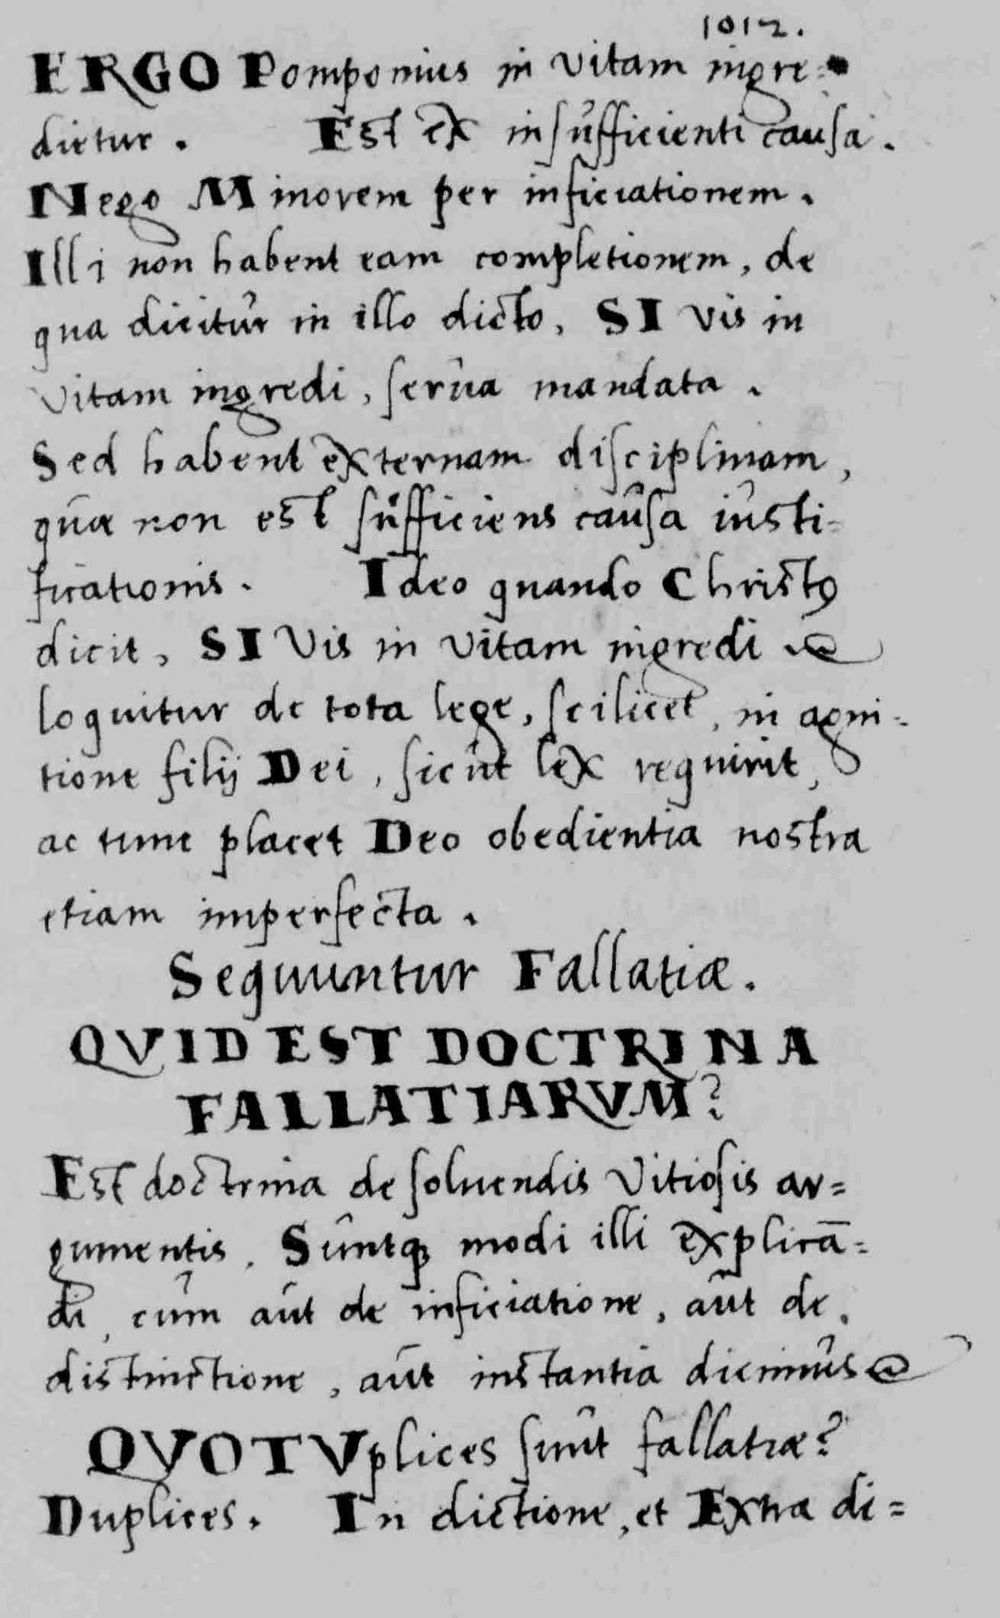 1012.
ERGO Pomponius in vitam ingre=
dietur. Est ex insufficienti causa.
Nego Minorem per inficiationem.
Illi non habent eam completionem, de
qua dicitur in illo dicto, SI vis in
vitam ingredi, serua mandata.
Sed habent externam disciplinam,
quae non est sufficiens causa iusti=
ficationis. Ideo quando Christꝰ
dicit, SI Vis in vitam ingredi
loquitur de tota lege, scilicet, in agni=
tione filij Dei, sicut lex requirit,
ac tunc placet Deo obedientia nostra
etiam imperfecta.
Sequuntur Fallatiæ.
QVID EST DOCTRINA
FALLATIARVM?
Est doctrina de soluendis Vitiosis ar=
gumentis. Suntqꝫ modi illi explicā=
di, cum aut de inficiatione, aut de.
distinctione, aut instantia dicimus
QVOTVplices sunt fallatiæ?
Duplices. In dictione, et Extra di=